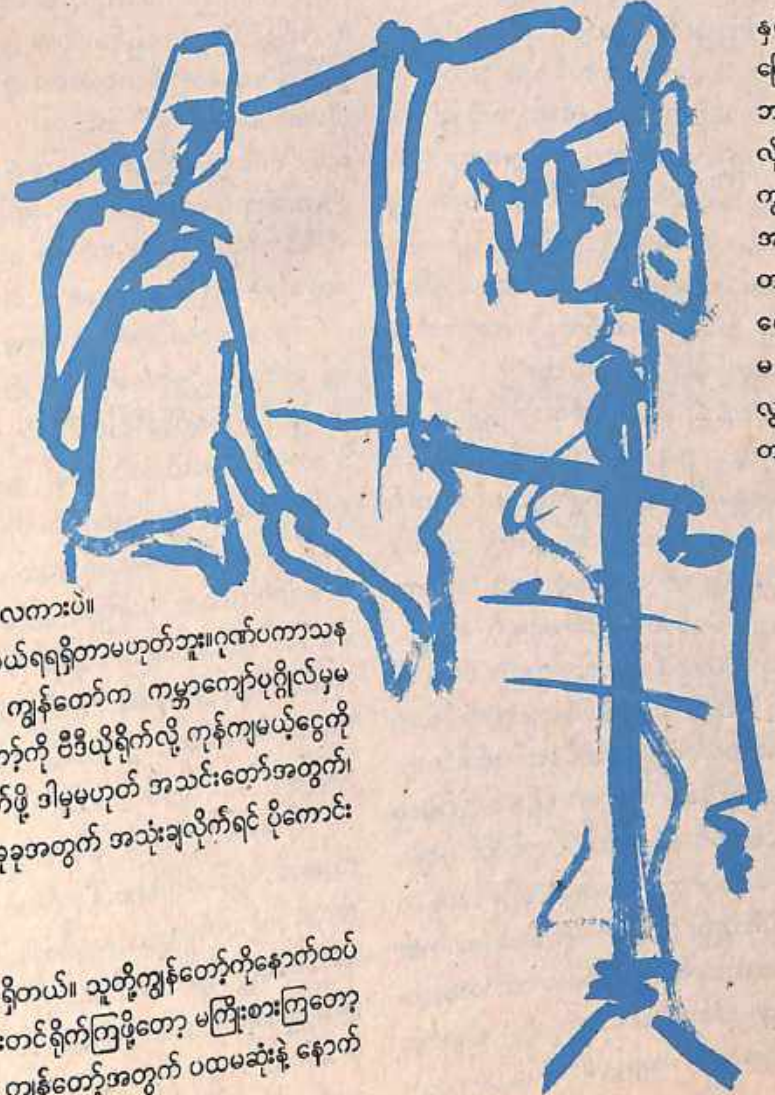 လကားပဲ။
ယ်ရရှိတာမဟုတ်ဘူး။ဂုဏ်ပကာသန
ကျွန်တော်က ကမ္ဘာကျော်ပုဂ္ဂိုလ်မှမ
ာ့်ကို ဗီဒီယိုရိုက်လို့ ကုန်ကျမယ့်ငွေကို
က်ဖို့ ဒါမှမဟုတ် အသင်းတော်အတွက်၊
ခုခုအတွက် အသုံးချလိုက်ရင် ပိုကောင်း
ရှိတယ်။ သူတို့ကျွန်တော့်ကိုနောက်ထပ်
းတင်ရိုက်ကြဖို့တော့ မကြိုးစားကြတော့
ကျွန်တော့်အတွက် ပထမဆုံးနဲ့ နောက်